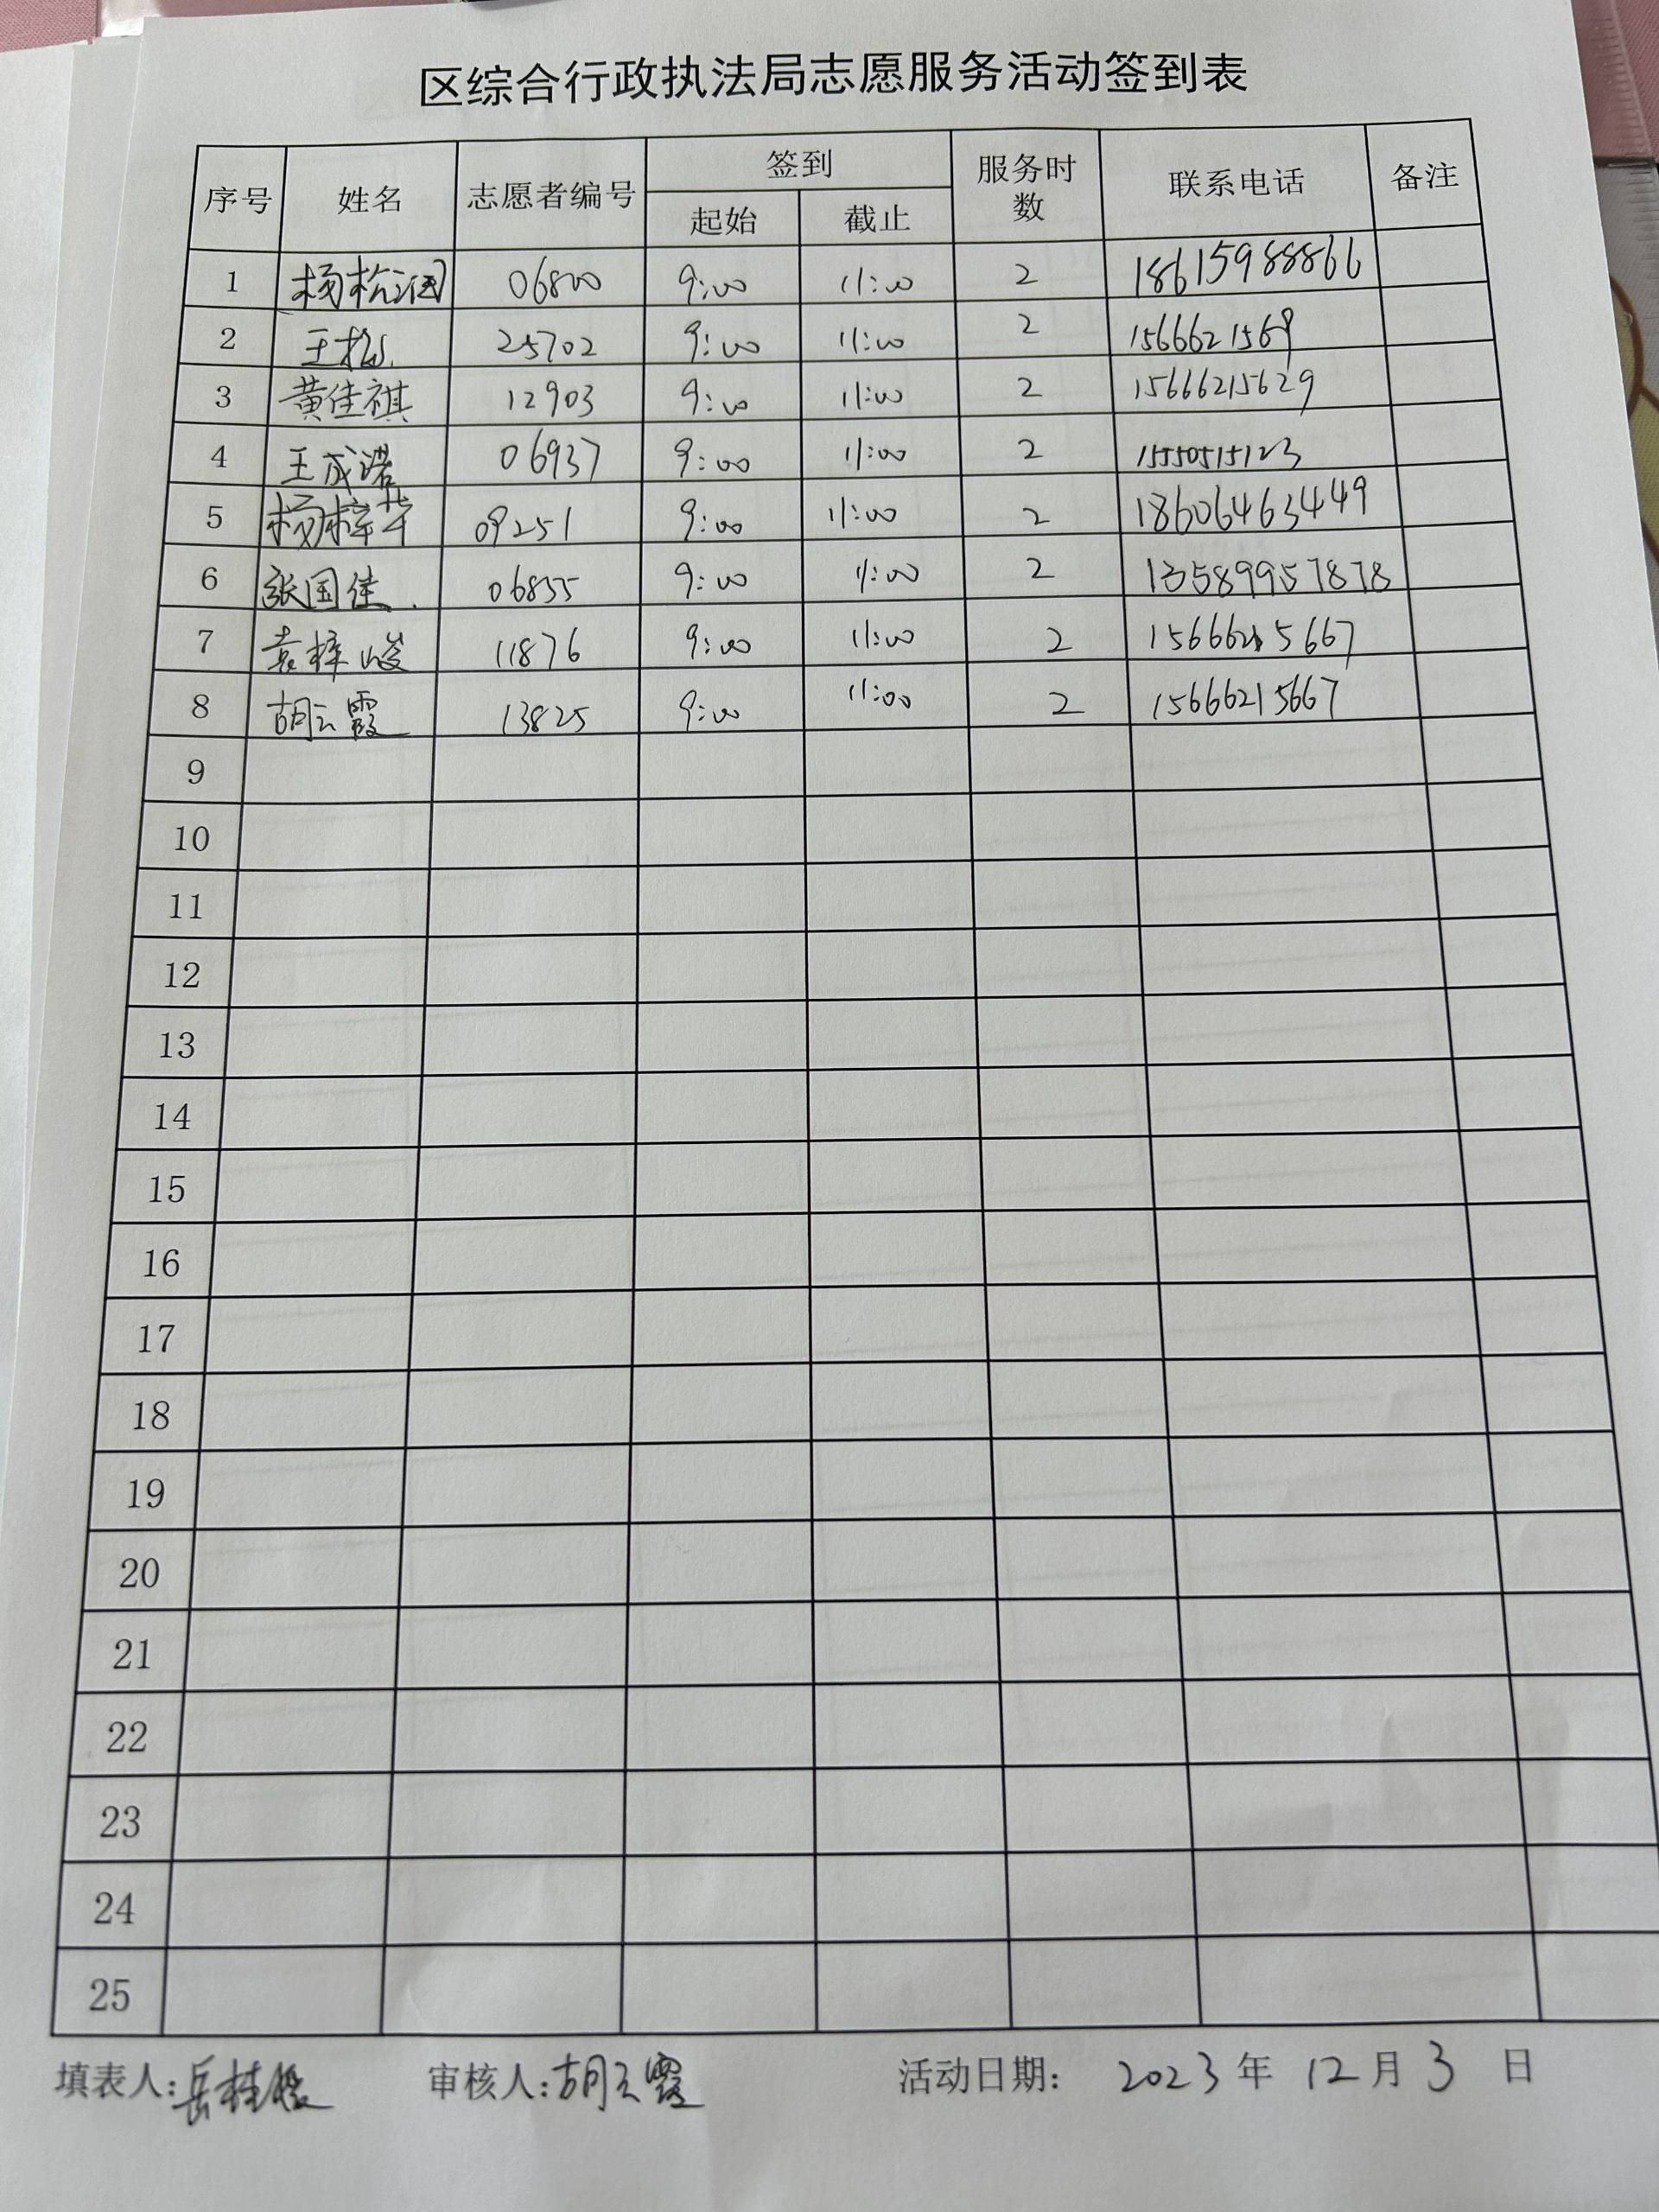 区综合行政执法局志愿服务活动签到表
序号 姓名 志愿者编号 签到 服务时数 联系电话 备注
起始 截止
1 06800 9:00 11:00 2 18615988866
2 25702 9:00 11:00 2
3 黄佳祺 12903 9:00 11:00 2 15666215629
4 王成 06937 9:00 11:00 2
5 09251 9:00 11:00 2 18606463449
6 张国佳 06855 9:00 11:00 2 13589957878
7 袁梓峻 11876 9:00 11:00 2 15666215667
8 胡云霞 13825 9:00 11:00 2 15666215667
9
10
11
12
13
14
15
16
17
18
19
20
21
22
23
24
25
填表人: 审核人:胡云霞 活动日期: 2023 年 12 月 3 日